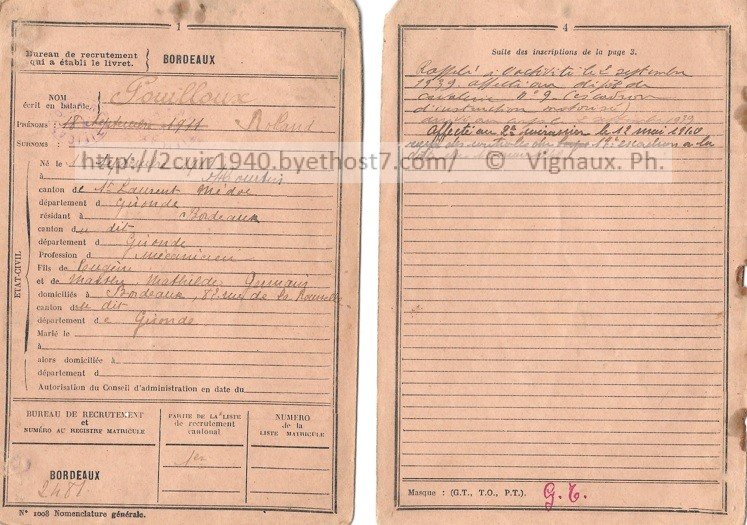 1
Bureau de recrutement
qui a établi le livret.
BORDEAUX
NOM
écrit en bâtarde.
Pouilloux
PRÉNOMS
18 Septembre 1911 Roland
SURNOMS :
Né le
à
canton de St Laurent Médoc
département d Gironde
résidant à Bordeaux
canton du dit
département d Gironde
Profession d mécanicien
Fils de Eugène
et de Mathilde
domiciliés à Bordeaux, rue de la
canton du dit
département de Gironde
Marié le
à
alors domiciliée à
département d
Autorisation du Conseil d'administration en date du
ÉTAT-CIVIL
BUREAU DE RECRUTEMENT
et
NUMÉRO AU REGISTRE MATRICULE
PARTIE DE LA LISTE
de recrutement
cantonal
NUMÉRO
de la
LISTE MATRICULE
BORDEAUX
2481
1er
N° 1008 Nomenclature générale.
4
Suite des inscriptions de la page 3.
Rappelé à l'activité le 2 septembre
1939 affecté au dépôt de
cavalerie n° 9
d'instruction
1939
Affecté au 2e cuirassier le 12 mai 1940
à la
Masque : (G.T., T.O., P.T.). G.T.
http://2cuir1940.byethost7.com/ © Vignaux. Ph.